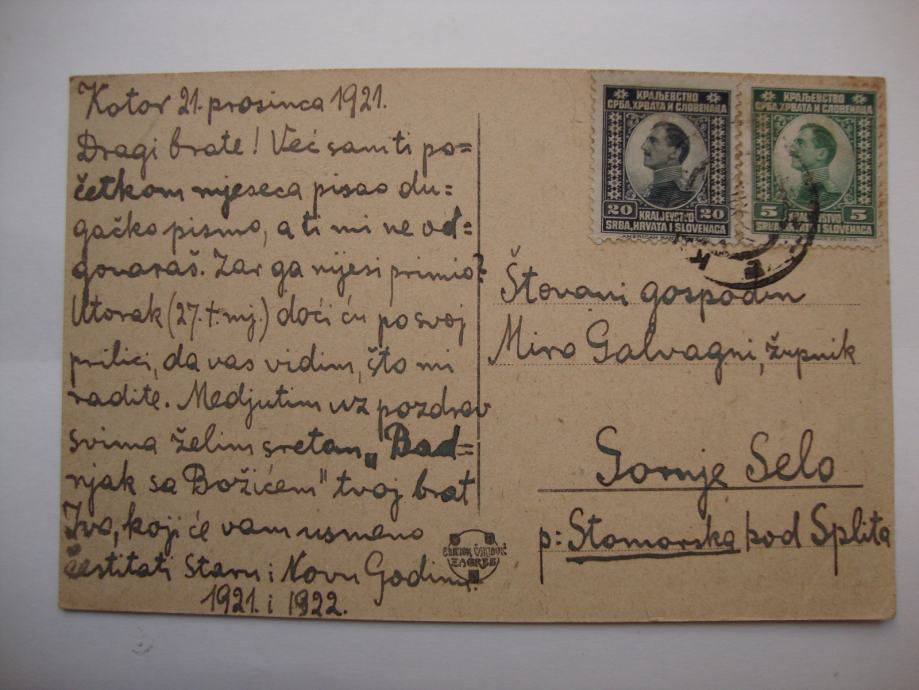 Kotor 21. prosinca 1921.
Dragi brate! Već sam ti po=
četkom mjeseca pisao du=
gačko pismo, a ti mi ne od=
govaraš. Zar ga nijesi primio?
Utorak (27. t. mj.) doći ću po svoj
prilici, da vas vidim, što mi
radite. Medjutim uz pozdrav
svima želim sretan „Bad=
njak sa Božićem" tvoj brat
Ivo, koji će vam usmeno
čestitati Staru i Novu Godinu
1921. i 1922.
КРАЉЕВСТВО
СРБА, ХРВАТА И СЛОВЕНАЦА
20 KRALJEVSTVO 20
SRBA, HRVATA I SLOVENACA
КРАЉЕВСТВО
СРБА, ХРВАТА И СЛОВЕНАЦА
5 KRALJEVSTVO 5
SRBA, HRVATA I SLOVENACA
Štovani gospodin
Miro Galvagni, župnik
Gornje Selo
p: Stomorska kod Splita
ZAGREB